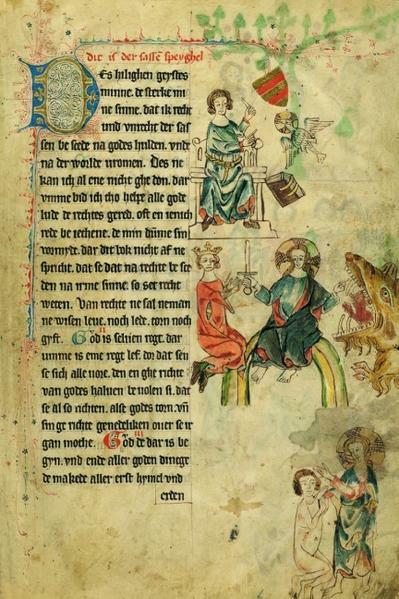 dit is der sassē speyghel
Des hilighen geystes
minne. de sterke mi
ne sinne. dat ik recht
und vnrecht der sas
sen be sceде na godes hulden. vnde
na der werlde vromen. Des ne
kan ich al ene nicht ghe don. dar
vmme bid ich tho helpe alle gode
lude de rechtes gered. oft en ienich
rede be ieghene. de min dūme sin
vormyde. dar dit bok nicht af ne
spricht. dat se dat na rechte be sce
den na irme sinne. so set recht
weten. Van rechte ne sal neman
ne wisen leue. noch lede. torn noch
gyft. God is seluen regt. dar
umme is eme regt lef. dor dat sen
se sich alle vore. den en ght richte
van godes haluen be uolen si. dat
se al so richten. alse godes torn. vn̄
sin ge richte genedeliken ouer se ir
gan moghe. God de dar is be
gyn. vnd ende aller goden dinege
de makede aller erst hymel vnd
erden